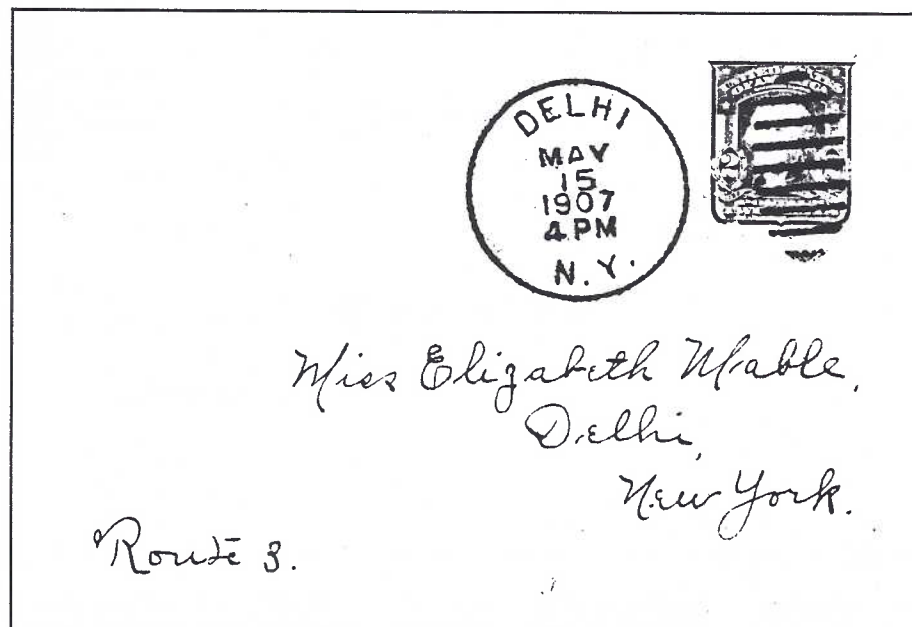 DELHI
MAY
15
1907
4 PM
N.Y.
2
Miss Elizabeth Mable,
Delhi,
New York.
Route 3.